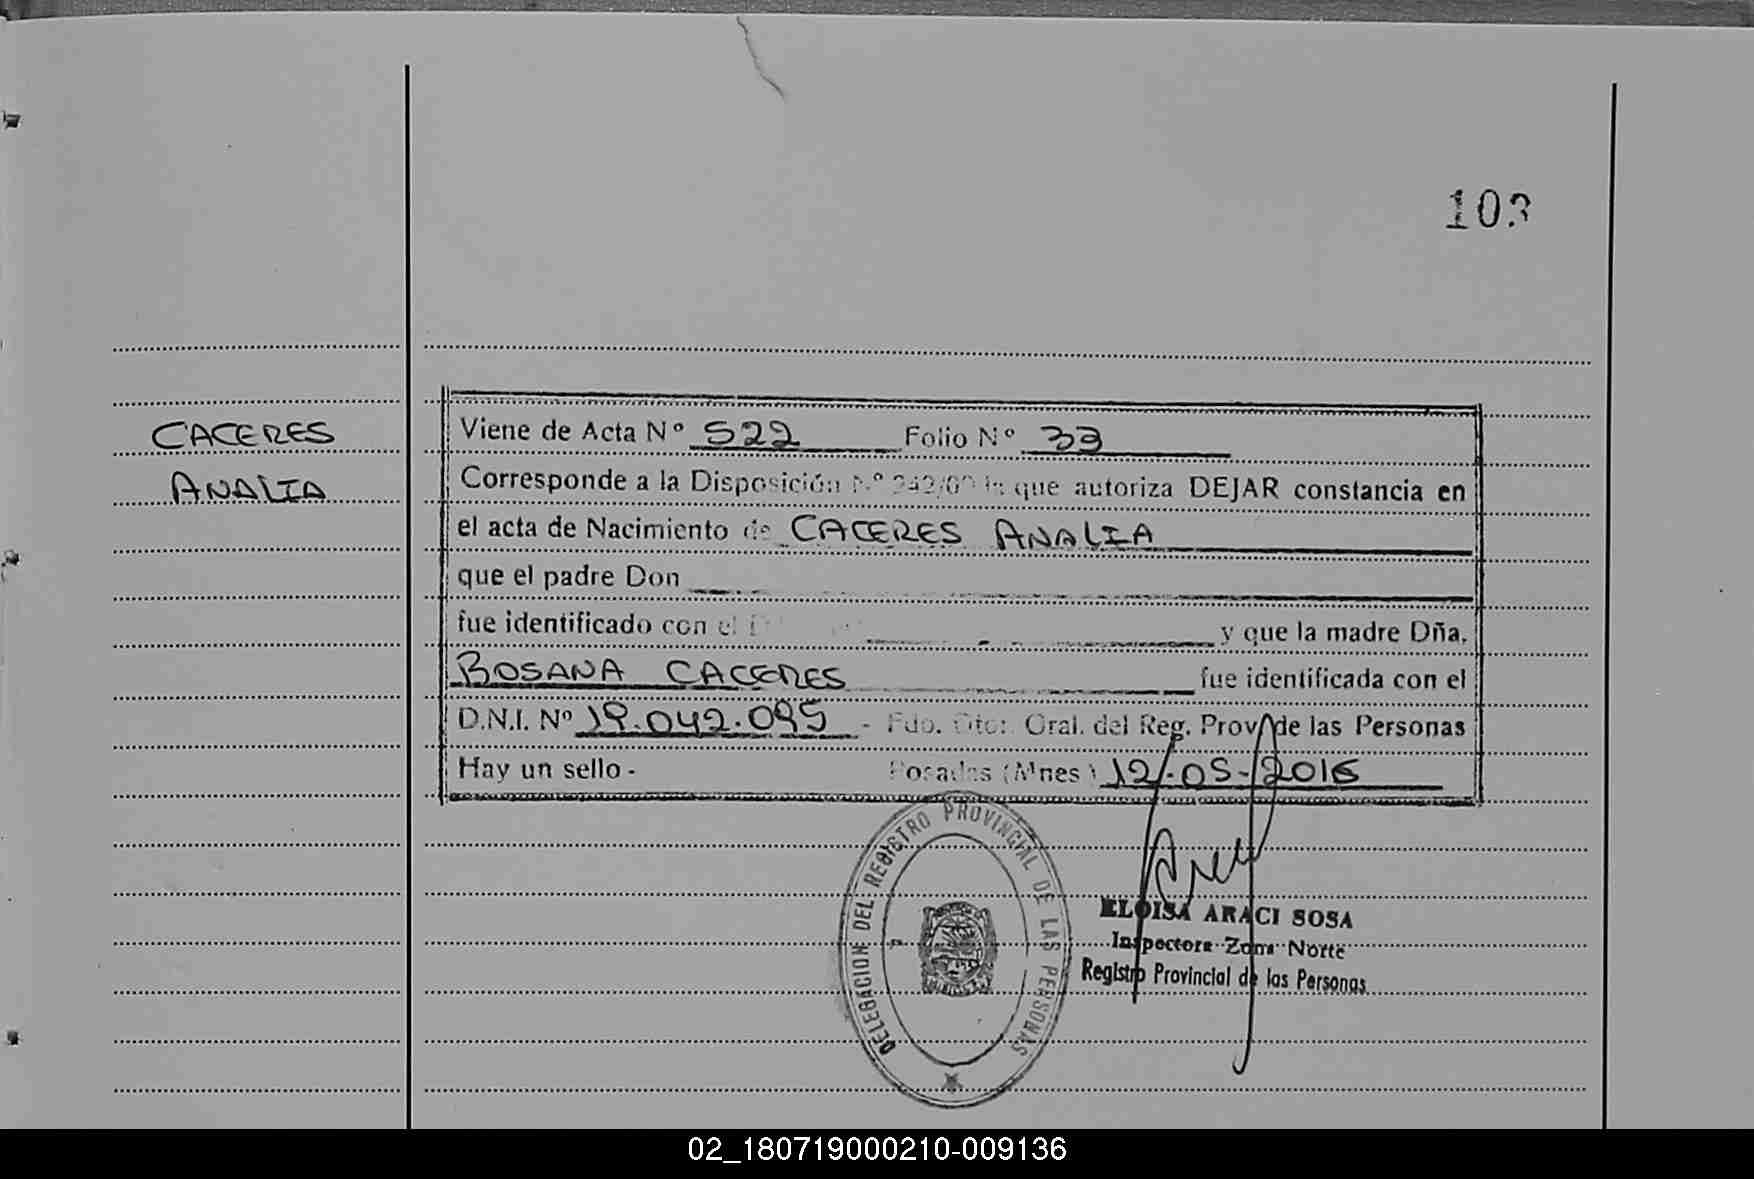 103
CACERES
ANALIA
Viene de Acta Nº 522 Folio Nº 33
Corresponde a la Disposición N.º 242/60 la que autoriza DEJAR constancia en
el acta de Nacimiento de CACERES ANALIA
que el padre Don
fue identificado con el y que la madre Dña.
ROSANA CACERES fue identificada con el
D.N.I. Nº 19.042.095 - Fdo. Dtor. Gral. del Reg. Prov. de las Personas
Hay un sello - Posadas (Mnes) 12-05-2016
DELEGACION DEL REGISTRO PROVINCIAL DE LAS PERSONAS
ELOISA ARACI SOSA
Inspectora Zona Norte
Registro Provincial de las Personas
02_180719000210-009136